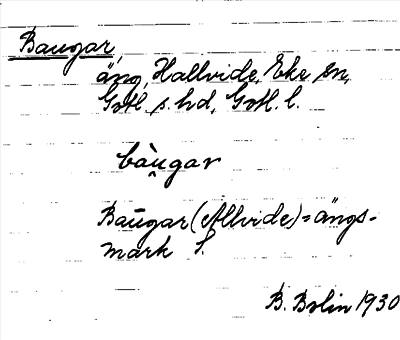 Baugar,
äng, Hallvide, Eke sn,
Gotl. s. hd, Gotl. l.
bàu̯gar
Baūgar (Allvide) = ängs-
mark S.
B. Bolin 1930